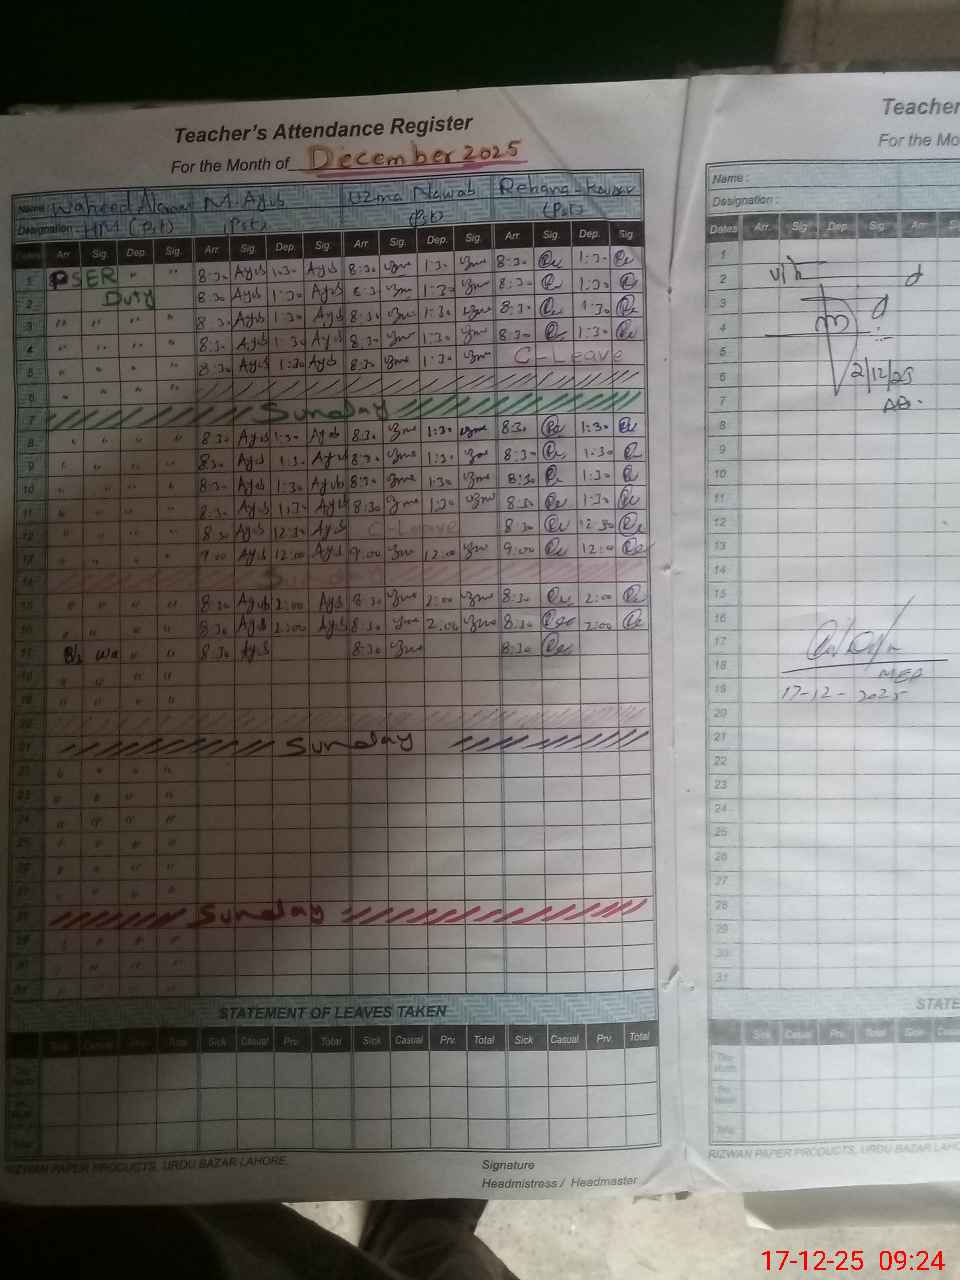 Teacher's Attendance Register
For the Month of December 2025
Name: Waheed M. Ayub Uzma Nawab Rehana Kousar
Designation: HM (Pst) (Pst) (Pst) (Pst)
Dates Arr. Sig. Dep. Sig. Arr. Sig. Dep. Sig. Arr. Sig. Dep. Sig. Arr. Sig. Dep. Sig.
1 PSER " " 8:30 Ayub 1:30 Ayub 8:30 Uzma 1:30 Uzma 8:30 1:30
2 Duty 8:30 Ayub 1:30 Ayub 8:30 Uzma 1:30 Uzma 8:30 1:30
3 " " " " 8:30 Ayub 1:30 Ayub 8:30 Uzma 1:30 Uzma 8:30 1:30
4 " " " " 8:30 Ayub 1:30 Ayub 8:30 Uzma 1:30 Uzma 8:30 1:30
5 " " " " 8:30 Ayub 1:30 Ayub 8:30 Uzma 1:30 Uzma C-Leave
6 " " " "
7 Sunday
8 " " " " 8:30 Ayub 1:30 Ayub 8:30 Uzma 1:30 Uzma 8:30 1:30
9 " " " " 8:30 Ayub 1:30 Ayub 8:30 Uzma 1:30 Uzma 8:30 1:30
10 " " " " 8:30 Ayub 1:30 Ayub 8:30 Uzma 1:30 Uzma 8:30 1:30
11 " " " " 8:30 Ayub 1:30 Ayub 8:30 Uzma 1:30 Uzma 8:30 1:30
12 " " " " 8:30 Ayub 12:30 Ayub C-Leave 8:30 12:30
13 " " " " 9:00 Ayub 12:00 Ayub 9:00 Uzma 12:00 Uzma 9:00 12:00
14 Sunday
15 " " " " 8:30 Ayub 2:00 Ayub 8:30 Uzma 2:00 Uzma 8:30 2:00
16 " " " " 8:30 Ayub 2:00 Ayub 8:30 Uzma 2:00 Uzma 8:30 2:00
17 " " 8:30 Ayub 8:30 Uzma 8:30
18 " " " "
19 " " " "
20
21 Sunday
22 " " " "
23 " " " "
24 " " " "
25 " " " "
26 " " " "
27 " " " "
28 Sunday
29 " " " "
30 " " " "
31 " " " "
STATEMENT OF LEAVES TAKEN
Sick Casual Prv. Total Sick Casual Prv. Total Sick Casual Prv. Total Sick Casual Prv. Total
Total
RIZWAN PAPER PRODUCTS, URDU BAZAR LAHORE.
Signature
Headmistress / Headmaster
Teacher
For the Mo
Name :
Designation :
Dates Arr. Sig. Dep. Sig. Arr.
1
2
3
4
5
6 2/12/25
7
8
9
10
11
12
13
14
15
16
17
18
19 17-12-2025
20
21
22
23
24
25
26
27
28
29
30
31
STATE
Sick Casual Prv. Total Sick
Total
RIZWAN PAPER PRODUCTS, URDU BAZAR LAHO
17-12-25 09:24